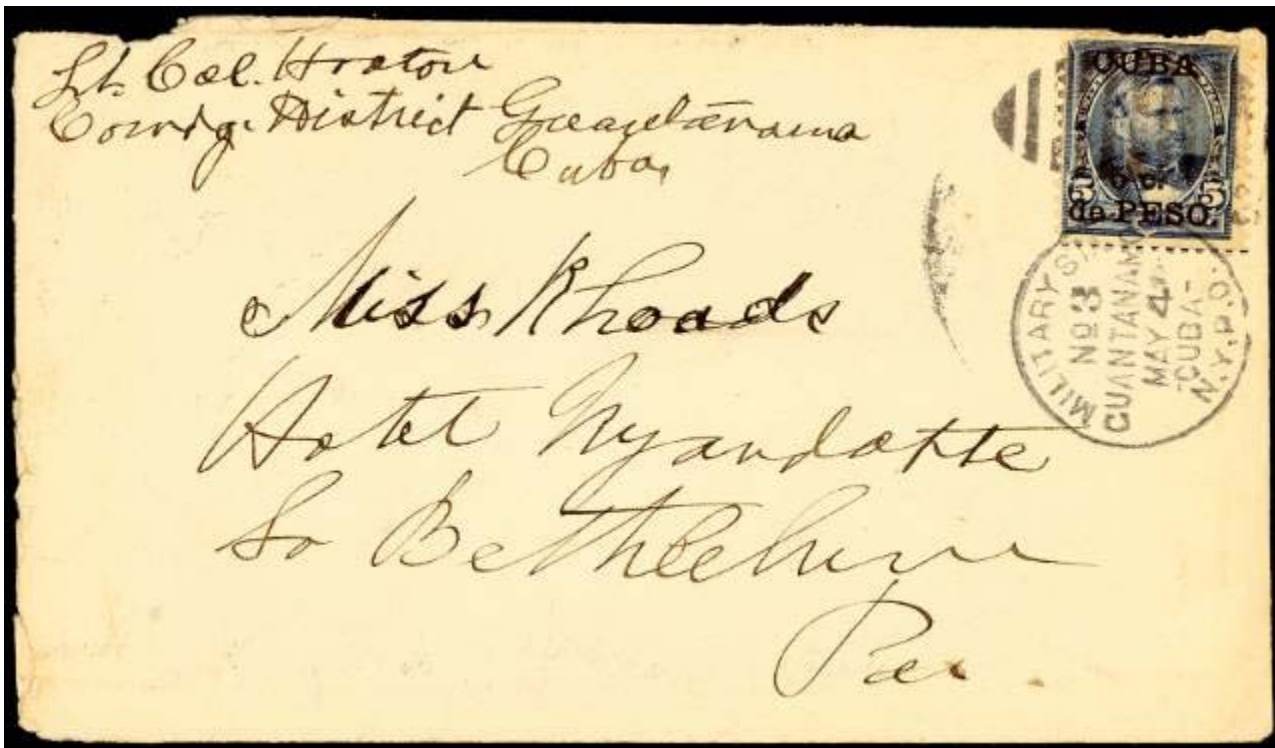 Lt. Col. Horton
Comdg. District Guantánamo
Cuba
CUBA
5 5
de PESO.
MILITARY
No 3
GUANTANAM
MAY 4
CUBA-
N.Y.P.O.
Miss Rhoads
Hotel Wyandotte
So Bethlehem
Pa.